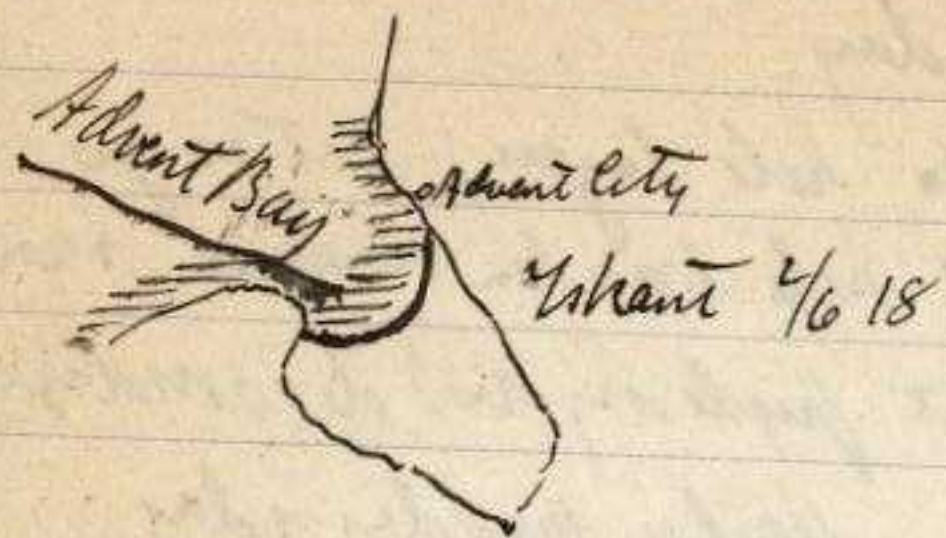 Advent Bay
Advent City
Iskant 2/6 18